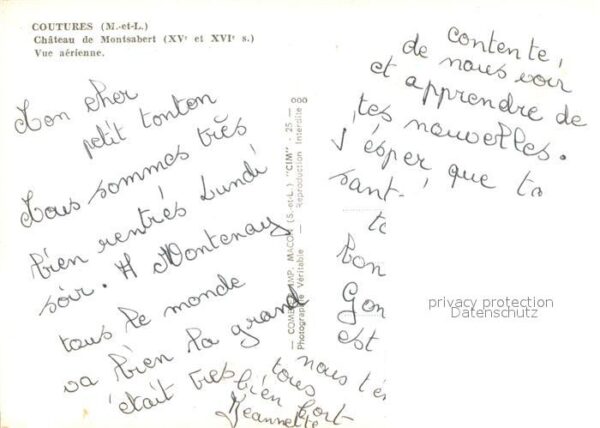 COUTURES (M.-et-L.)
Château de Montsabert (XVe et XVIe s.)
Vue aérienne.
Mon cher
petit tonton
Nous sommes très
bien rentrés Lundi
soir. A Montenay
tous le monde
va bien la grand
était tres bien
contente,
de nous voir
et apprendre de
tes nouvelles.
J'ésper que ta
sant
bon
est
nous t'é
tous
Jeannette
COMBIER IMP. MACON (S.-et-L.) "CIM" - 25 - 000
Photographie Véritable - Reproduction Interdite
privacy protection
Datenschutz